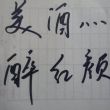 美酒……
醉红颜